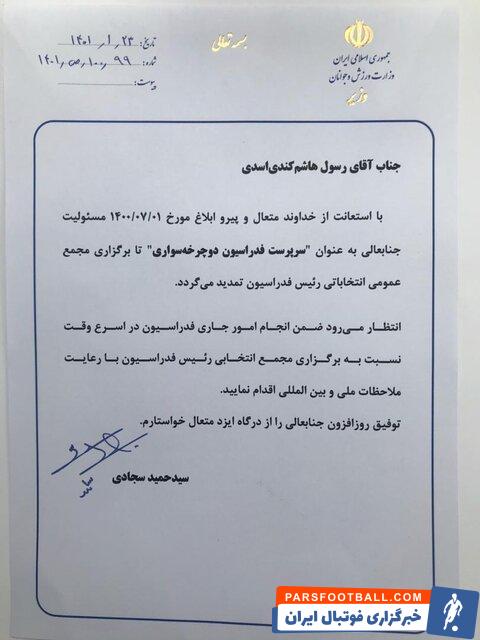 بسمه تعالی
جمهوری اسلامی ایران
وزارت ورزش و جوانان
وزیر
تاریخ: ۱۴۰۱/۱/۲۳
شماره: ۱۴۰۱/ص/۱۰۰/۹۹
پیوست:
جناب آقای رسول هاشم‌کندی‌اسدی
با استعانت از خداوند متعال و پیرو ابلاغ مورخ ۱۴۰۰/۰۷/۰۱ مسئولیت
جنابعالی به عنوان "سرپرست فدراسیون دوچرخه‌سواری" تا برگزاری مجمع
عمومی انتخاباتی رئیس فدراسیون تمدید می‌گردد.
انتظار می‌رود ضمن انجام امور جاری فدراسیون در اسرع وقت
نسبت به برگزاری مجمع انتخابی رئیس فدراسیون با رعایت
ملاحظات ملی و بین المللی اقدام نمایید.
توفیق روزافزون جنابعالی را از درگاه ایزد متعال خواستارم.
سیدحمید سجادی
PARSFOOTBALL.COM
خبرگزاری فوتبال ایران